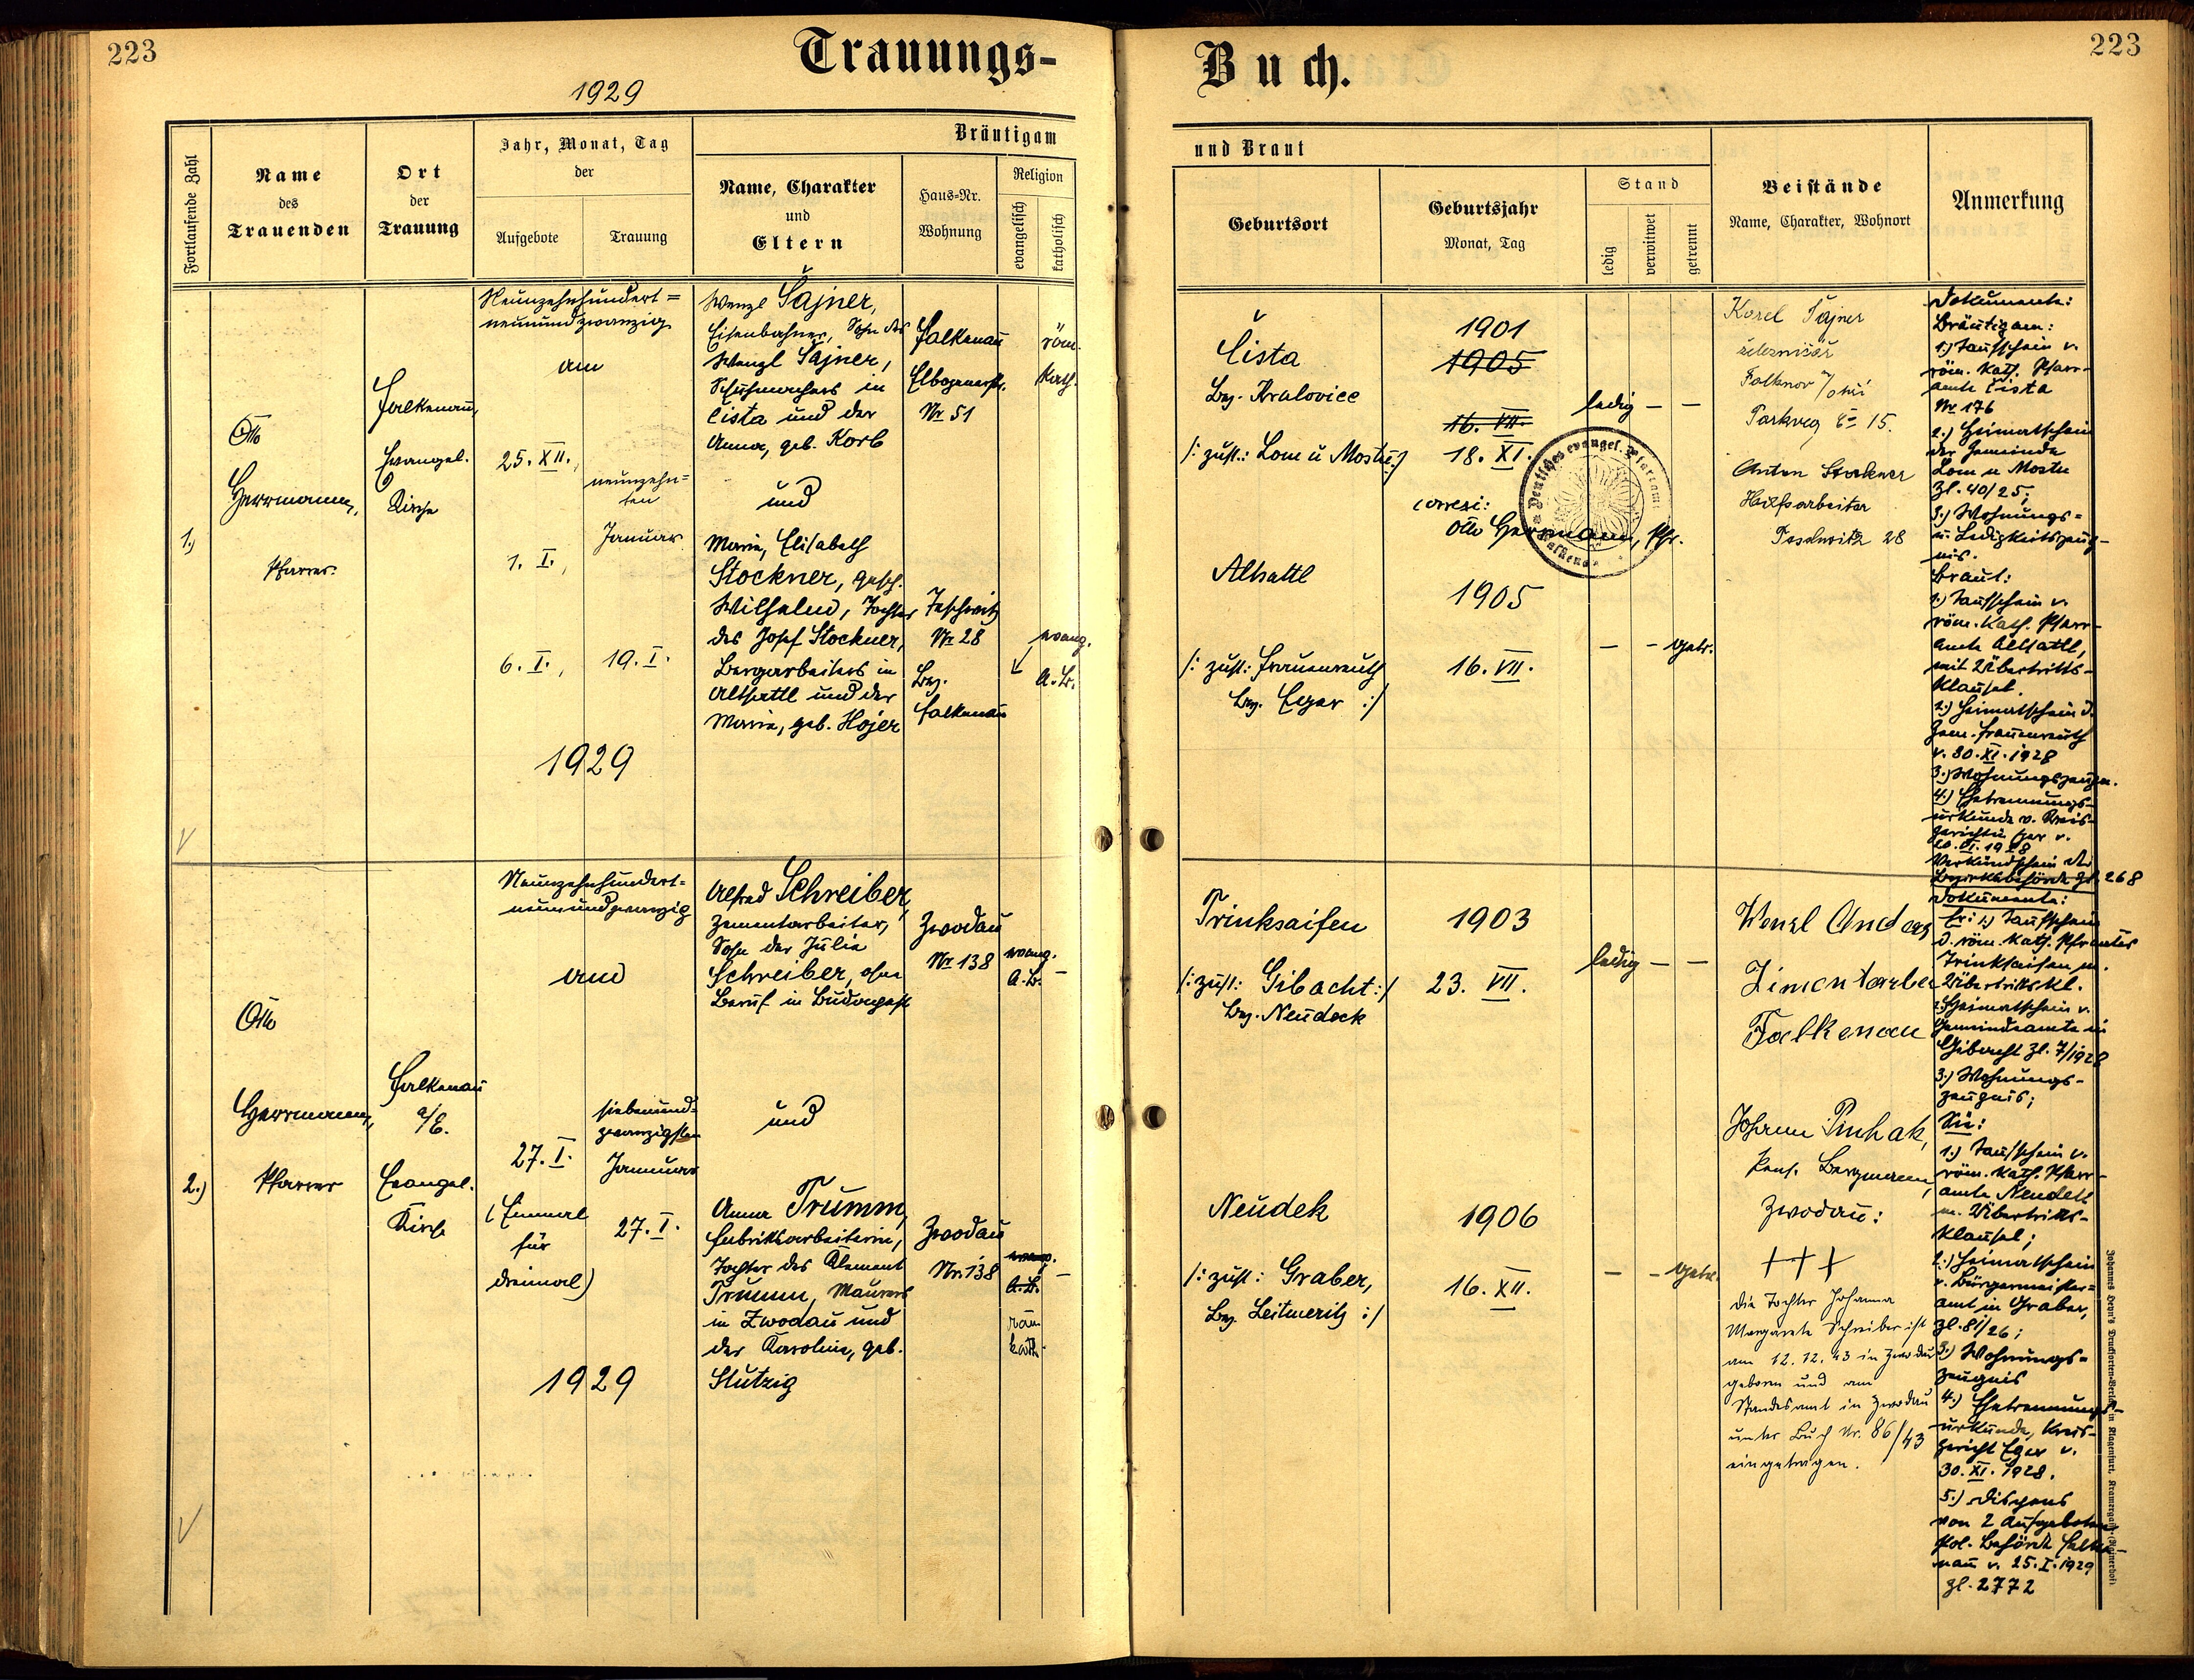 223
Trauungs-
Buch.
223
1929
Fortlaufende Zahl
Name
des
Trauenden
Ort
der
Trauung
Jahr, Monat, Tag
der
Aufgebote
Trauung
Bräutigam
Name, Charakter
und
Eltern
Haus-Nr.
Wohnung
Religion
evangelisch
katholisch
und Braut
Geburtsort
Geburtsjahr
Monat, Tag
Stand
ledig
verwitwet
getrennt
Beistände
Name, Charakter, Wohnort
Anmerkung
1.)
Otto
Herrmann,
Pfarrer.
Falkenau,
Evangel.
Kirche
Neunzehnhundert=
neunundzwanzig
am
25. XII.,
1. I.,
6. I.,
neunzehn=
ten
Januar
19. I.
1929
Wenzl Šajner,
Eisenbahner, Sohn des
Wenzl Šajner,
Schuhmachers in
Čista und der
Anna, geb. Korb
und
Marie, Elisabeth
Stockner, gesch.
Wilhelm, Tochter
des Josef Stockner,
Bergarbeiters in
Altsattl und der
Marie, geb. Hojer
Falkenau
Elbogenerstr.
Nr 51
Teschwitz
Nr 28
Bez.
Falkenau
röm.
kath.
evang.
A.B.
Čista
Bez. Kralovice
/: zust.: Lom u Mostu :/
Altsattl
/: zust: Frauenreuth
Bez. Eger :/
1901
1905
16. VII.
18. XI.
correxi:
Otto Herrmann, Pfr.
1905
16. VII.
ledig – –
– – getr.
Deutsches evangel. Pfarramt
Falkenau
Karel Šajner
železničář
Falknov n/ohří
Parkweg č. 15.
Anton Stockner
Hilfsarbeiter
Teschwitz 28
Dokumente:
Bräutigam:
1.) Taufschein v.
röm. kath. Pfarr-
amte Čista
Nr. 176
2.) Heimatschein
der Gemeinde
Lom u Mostu
Zl. 40/25;
3.) Wohnungs=
u. Ledigkeitszeug-
nis.
Braut:
1.) Taufschein v.
röm. kath. Pfarr-
amte Altsattl,
mit Übertritts-
klausel.
2.) Heimatschein d.
Gem. Frauenreuth
v. 30. XI. 1928
3.) Wohnungszeugn.
4.) Ehetrennungs-
urkunde v. Kreis-
gerichte Eger v.
XI. 1928
Verkündschein der
Bezirksbehörde Zl. 268
2.)
Otto
Herrmann,
Pfarrer
Falkenau
a/E.
Evangel.
Kirche
Neunzehnhundert=
neunundzwanzig
am
27. I.
(Einmal
für
dreimal)
siebenund=
zwanzigsten
Januar
27. I.
1929
Alfred Schreiber,
Zementarbeiter,
Sohn der Julie
Schreiber, ohne
Beruf in Budapest
und
Anna Trumm,
Fabriksarbeiterin,
Tochter des Klement
Trumm, Maurers
in Zwodau und
der Karoline, geb.
Stutzig
Zwodau
Nr 138
Zwodau
Nr. 138
evang.
A.B. –
evang.
A.B. –
röm
kath.
Trinksaifen
/: zust: Gibacht :/
Bez. Neudeck
Neudek
/: zust: Graber,
Bez. Leitmeritz :/
1903
23. VII.
1906
16. XII.
ledig – –
– – getr.
Wenzl Anders
Zimentarbei
Falkenau
Johann Puchak,
Pens. Bergmann,
Zwodau:
+++
Die Tochter Johanna
Margarete Schreiber ist
am 12. 12. 43 in Zwodau
geboren und am
Standesamt in Zwodau
unter Buch Nr. 86/43
eingetragen.
Dokumente:
Er: 1.) Taufschein
d. röm. kath. Pfarramtes
Trinksaifen m.
Übertrittskl.
2.) Heimatschein v.
Gemeindeamte in
Gibacht Zl. 7/1928
3.) Wohnungs-
zeugnis;
Sie:
1.) Taufschein v.
röm. kath. Pfarr-
amte Neudek
m. Übertritts-
klausel;
2.) Heimatschein
v. Bürgermeister=
amt in Graber,
Zl. 81/26;
3.) Wohnungs=
zeugnis
4.) Ehetrennungs-
urkunde, Kreis-
gericht Eger v.
30. XI. 1928.
5.) Dispens
von 2 Aufgeboten
pol. Behörde Falke-
nau v. 25. I. 1929
Zl. 2772
Johannes Heyn's Drucksorten-Verlag in Klagenfurt, Kramergasse